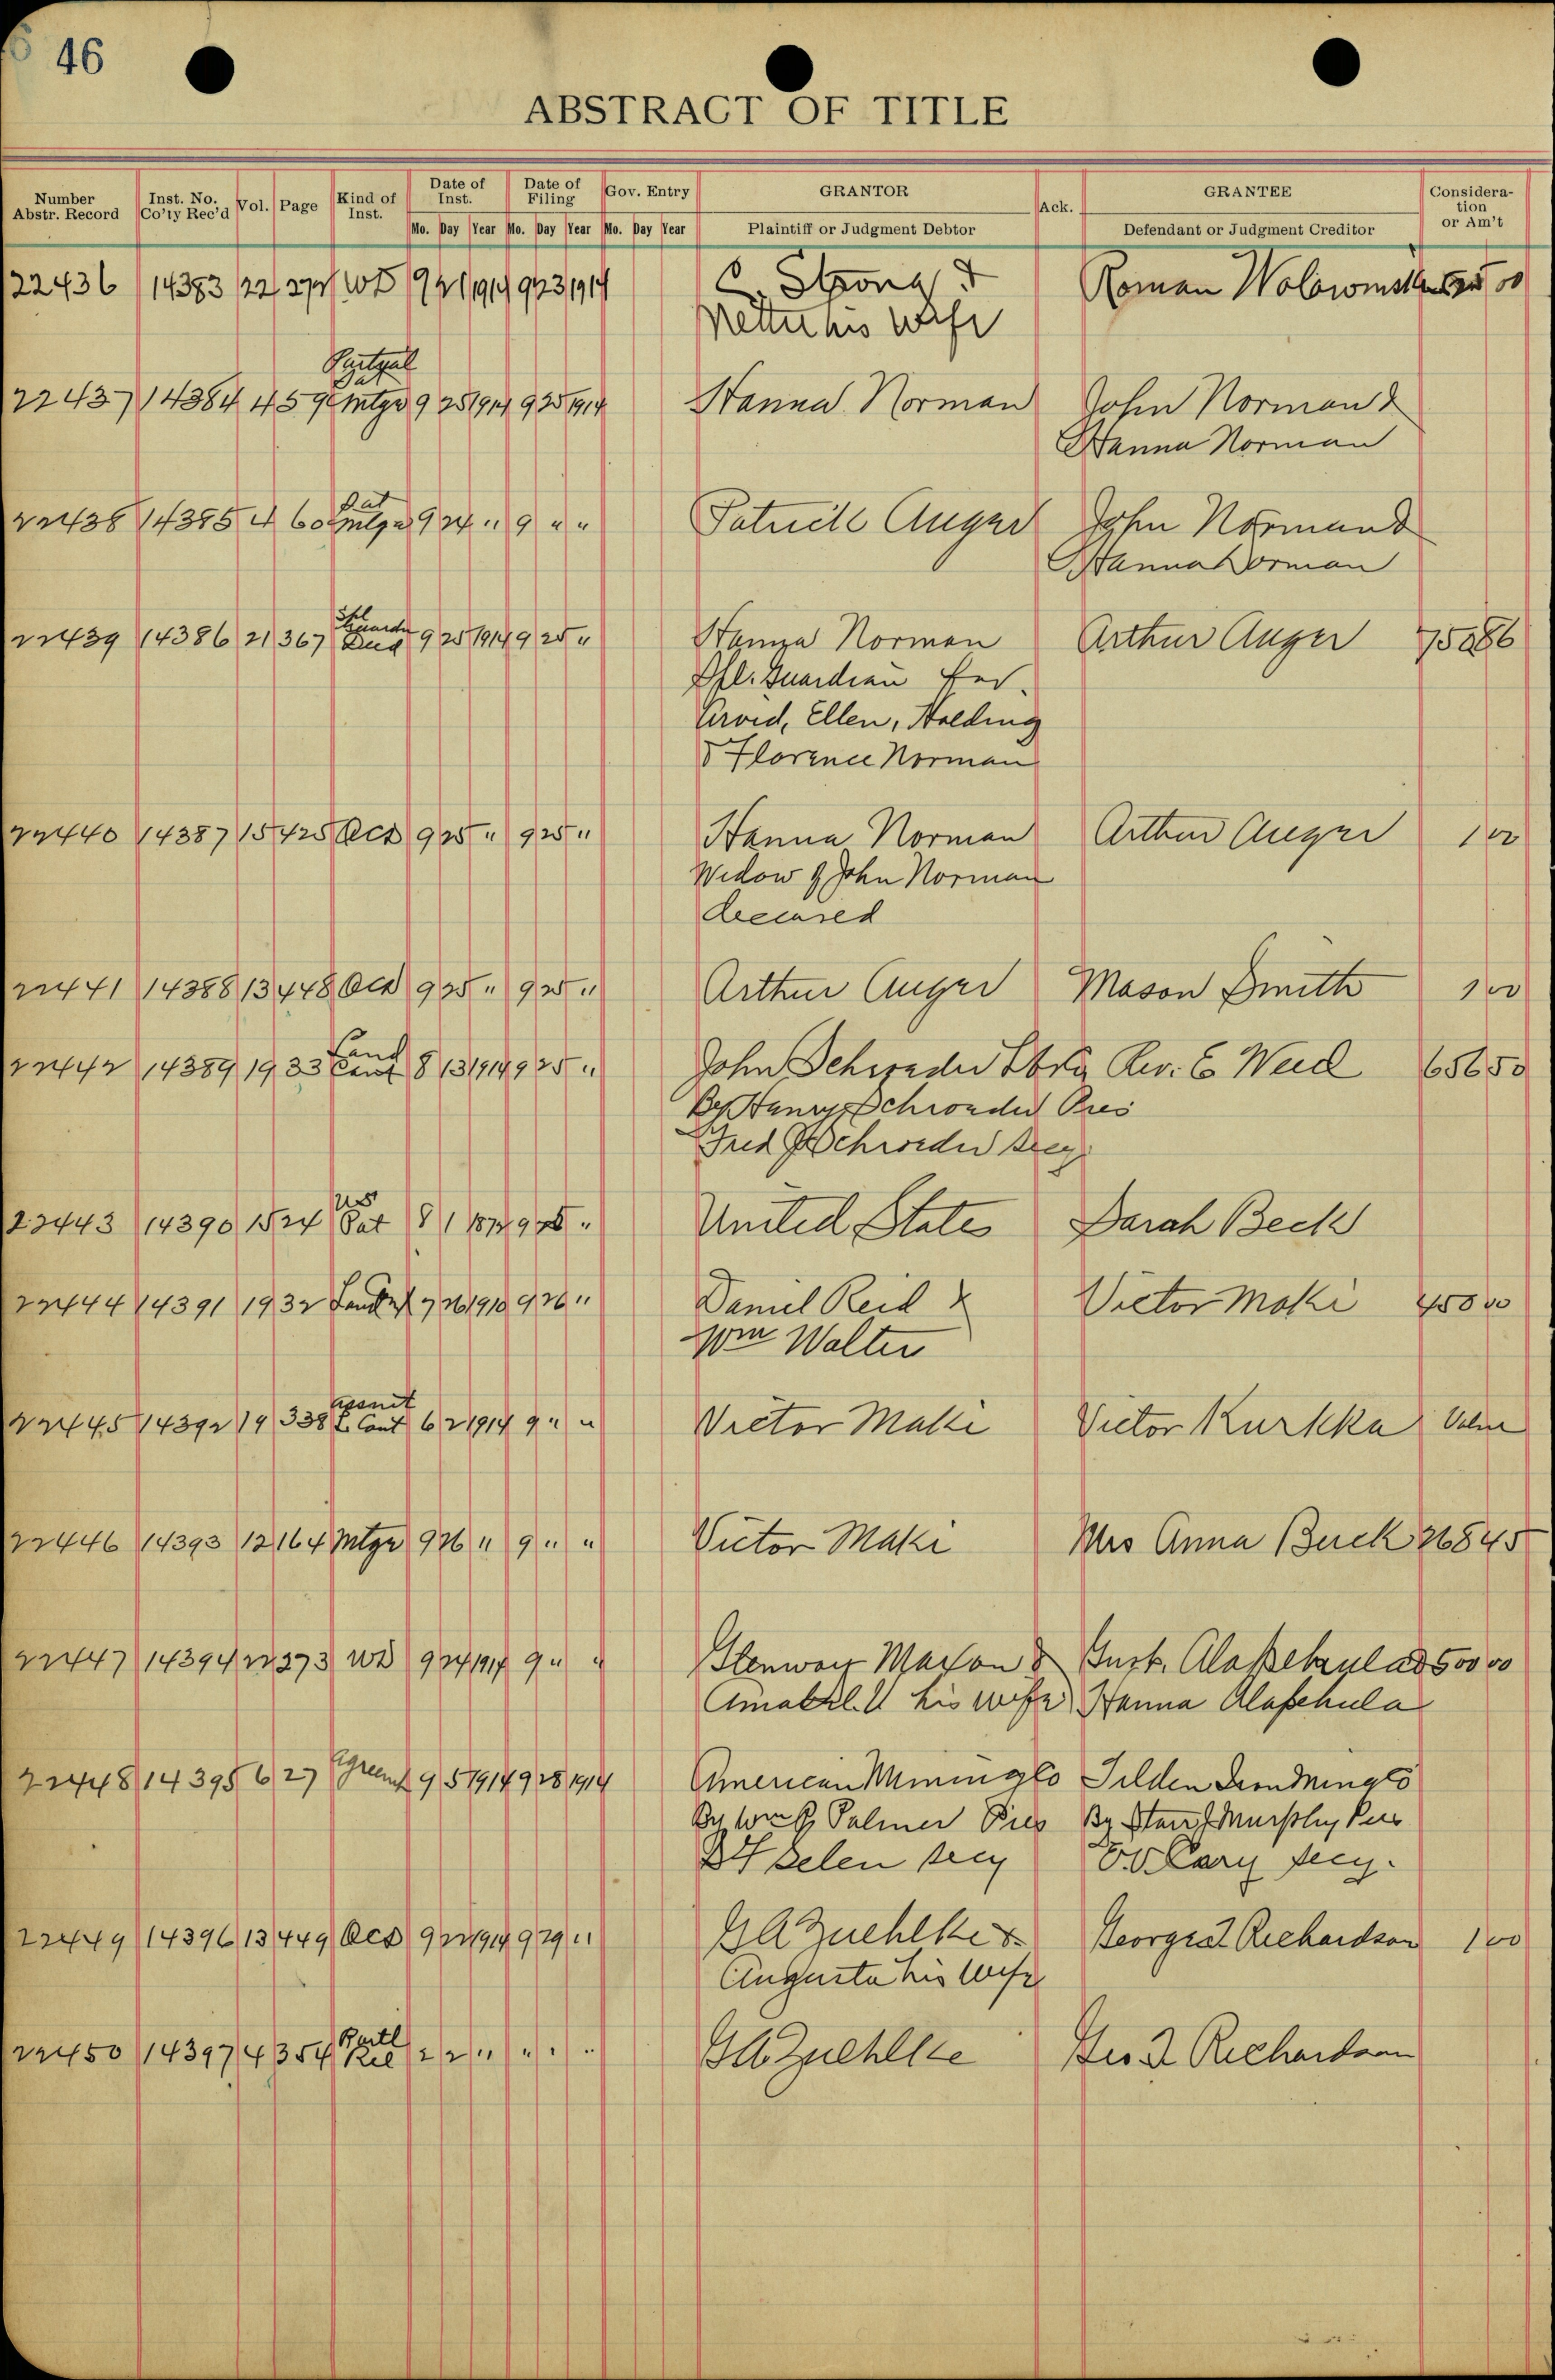 46
ABSTRACT OF TITLE
Number Abstr. Record Inst. No. Co'ty Rec'd Vol. Page Kind of Inst. Date of Inst. Date of Filing Gov. Entry GRANTOR Ack. GRANTEE Consideration or Am't
Mo. Day Year Mo. Day Year Mo. Day Year Plaintiff or Judgment Debtor Defendant or Judgment Creditor
22436 14383 22 WD 9 21 1914 9 23 1914 C. Strong & Roman 00
his wife
22437 14384 4 59 Mtge 9 25 1914 9 25 1914 Hanna Norman John Norman &
Hanna Norman
22438 14385 4 60 Sat Mtge 9 24 " 9 " " Auger John Norman &
Hanna Norman
22439 14386 21 367 Deed 9 25 1914 9 25 " Hanna Norman Arthur Auger 750 86
Spl. Guardian for
Arvid, Ellen,
& Florence Norman
22440 14387 15 425 QCD 9 25 " 9 25 " Hanna Norman Arthur Auger 1 00
Widow of John Norman
deceased
22441 14388 13 448 QCD 9 25 " 9 25 " Arthur Auger Mason Smith 1 00
22442 14389 19 33 Land Cont 8 13 1914 9 25 " John Schroeder Rev. E 656 50
By Henry Schroeder Pres
Fred J Schroeder Secy
22443 14390 15 24 US Pat 8 1 9 " United States Sarah Beck
22444 14391 19 32 7 26 1910 9 26 " Daniel Reid & Victor Maki 450 00
Wm Walter
22445 14392 19 338 Assmt L Cont 6 2 1914 9 " " Victor Maki Victor Kurkka
22446 14393 12 164 Mtge 9 26 " 9 " " Victor Maki Mrs Anna Buck 268 45
22447 14394 22 273 WD 9 24 1914 9 " " Glenway Maxon & Gust. 500 00
his wife Hanna
22448 14395 6 27 Agreemt 9 5 1914 9 28 1914 American Mining Co Tilden Iron Mining Co
By Palmer Pres By Murphy Pres
Secy Cary Secy.
22449 14396 13 449 QCD 9 22 1914 9 29 " G A Zuehlke & George Richardson 1 00
Augusta his wife
22450 14397 4 354 Partl Rel 2 2 " " " " G A Zuehlke Geo Richardson